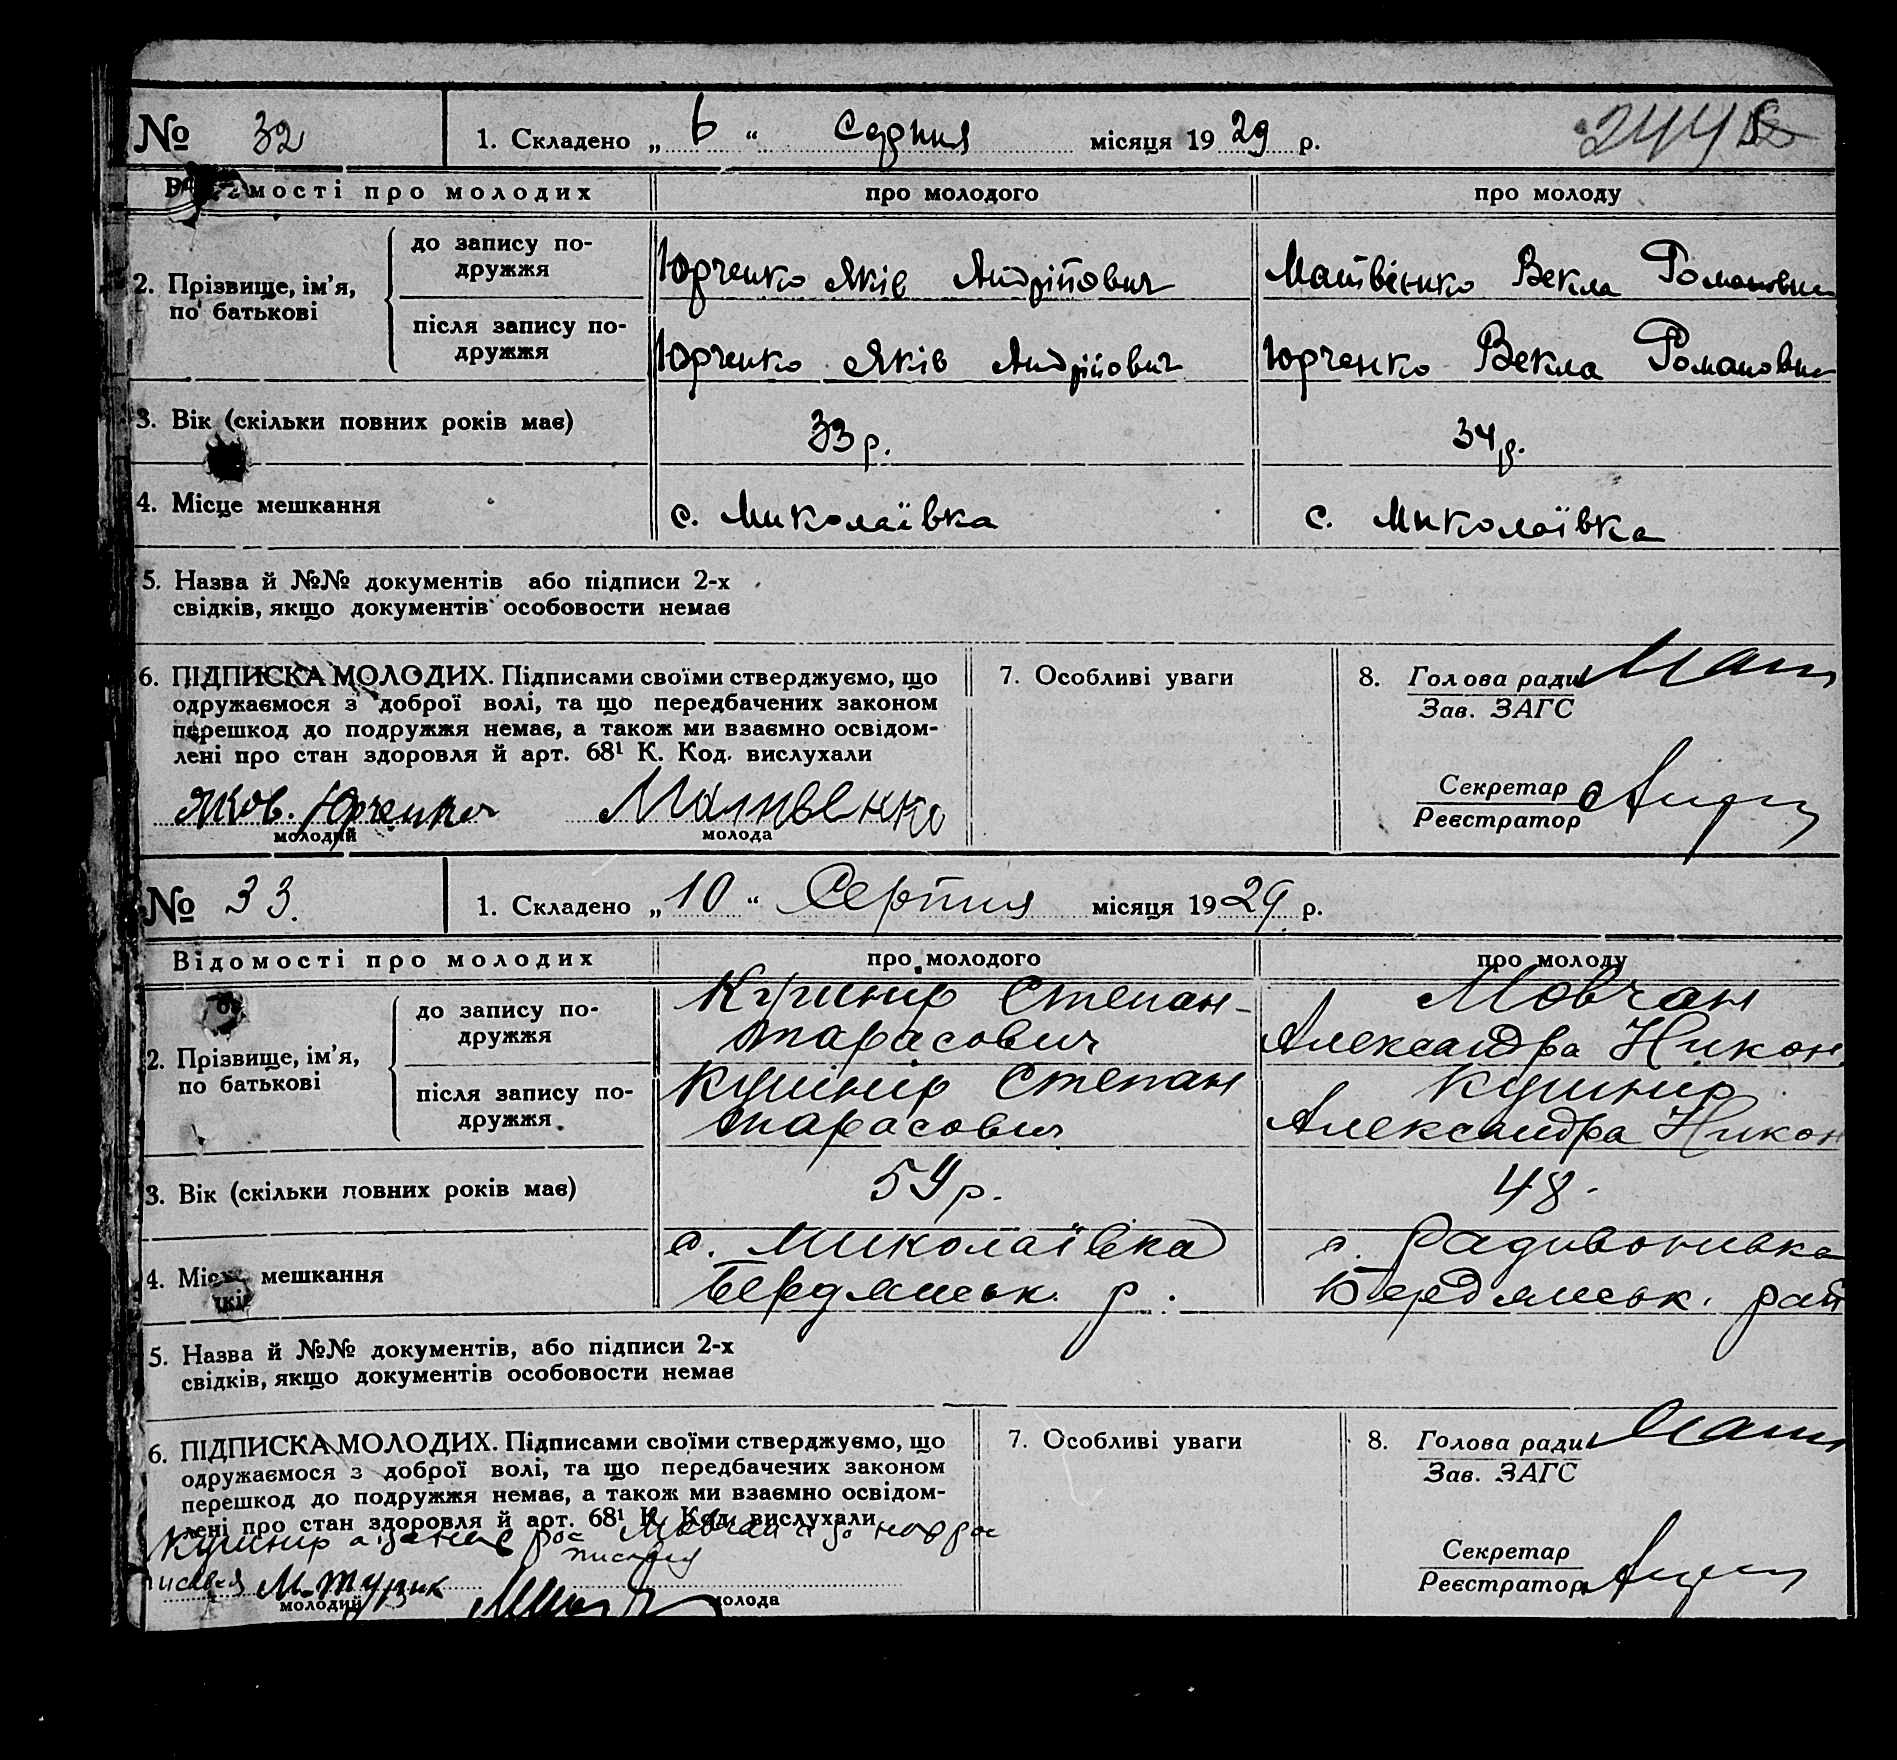 № 32
1. Складено „ 6 “ Серпня місяця 1929 р.
244
Відомості про молодих
про молодого
про молоду
2. Прізвище, ім'я, по батькові
до запису по-
дружжя
Юрченко Яків Андрійович
Матвієнко Векла Романовна
після запису по-
дружжя
Юрченко Яків Андрійович
Юрченко Векла Романовна
3. Вік (скільки повних років має)
33 р.
34 р.
4. Місце мешкання
с. Миколаївка
с. Миколаївка
5. Назва й №№ документів або підписи 2-х
свідків, якщо документів особовости немає
6. ПІДПИСКА МОЛОДИХ. Підписами своїми стверджуємо, що
одружаємося з доброї волі, та що передбачених законом
перешкод до подружжя немає, а також ми взаємно освідом-
лені про стан здоровля й арт. 68¹ К. Код. вислухали
Яков. Юрченко
молодий
Матвенко
молода
7. Особливі уваги
8. Голова ради
Зав. ЗАГС
Секретар
Реєстратор
№ 33.
1. Складено „ 10 “ Серпня місяця 1929 р.
Відомості про молодих
про молодого
про молоду
2. Прізвище, ім'я,
по батькові
до запису по-
дружжя
Кушнир Степан
Тарасович
Мовчан
Александра Никон.
після запису по-
дружжя
Кушнір Степан
Тарасович
Кушнир
Александра Никон
3. Вік (скільки повних років має)
54 р.
48.
4. Місце мешкання
с. Миколаївка
Бердянськ. р.
с. Радивонивка
Бердянськ. рай
5. Назва й №№ документів, або підписи 2-х
свідків, якщо документів особовости немає
6. ПІДПИСКА МОЛОДИХ. Підписами своїми стверджуємо, що
одружаємося з доброї волі, та що передбачених законом
перешкод до подружжя немає, а також ми взаємно освідом-
лені про стан здоровля й арт. 68¹ К. Код. вислухали
Кушнир а за него рос Мовчан а за нюю рос
писався писався
молодий
молода
7. Особливі уваги
8. Голова ради
Зав. ЗАГС
Секретар
Реєстратор